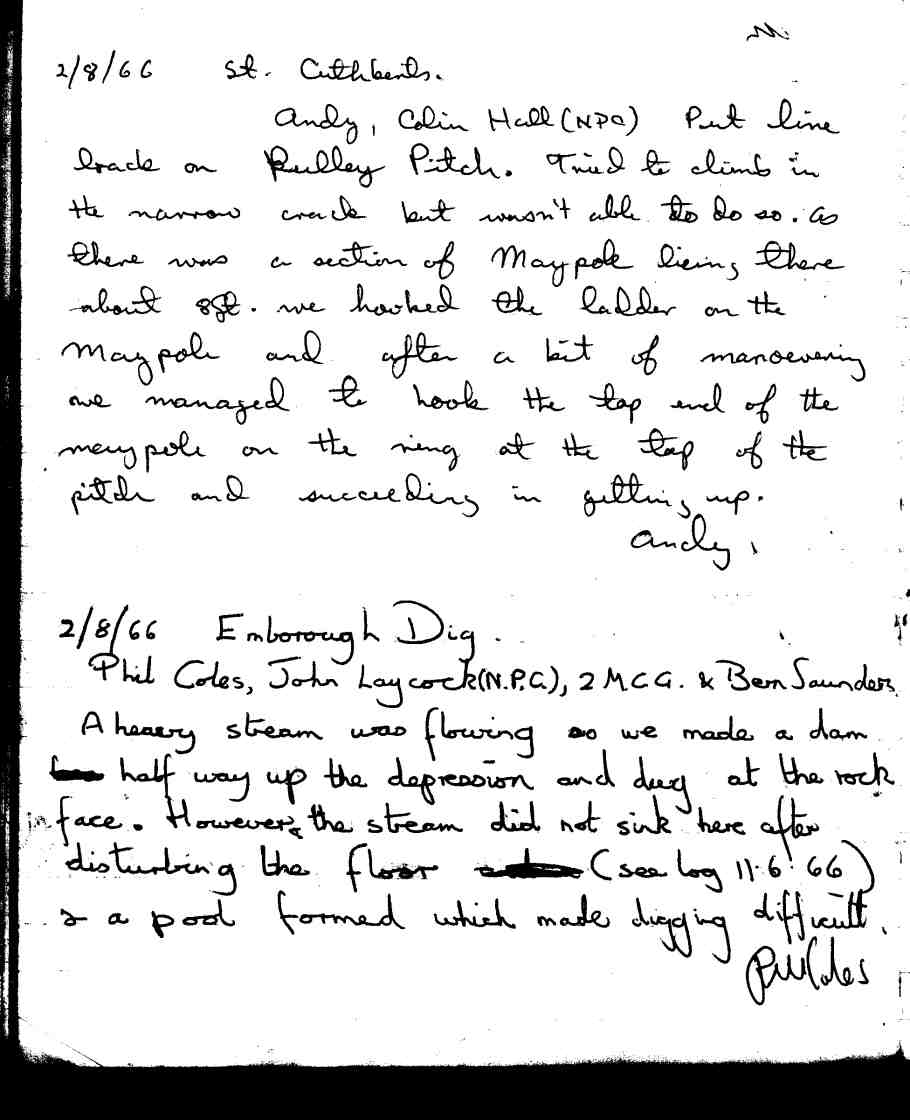 2/8/66 St. Cuthberts.
Andy, Colin Hall (NPC) Put line
back on Pulley Pitch. Tried to climb in
the narrow crack but wasn't able to do so. as
there was a section of Maypole lieing there
about 8ft. we hooked the ladder on the
Maypole and after a bit of manoevering
we managed to hook the top end of the
maypole on the ring at the top of the
pitch and succeeding in getting up.
Andy.
2/8/66 Emborough Dig.
Phil Coles, John Laycock (N.P.C.), 2 M.C.G. & Bern Saunders
A heavy stream was flowing so we made a dam
half way up the depression and dug at the rock
face. However, the stream did not sink here after
disturbing the floor (see log 11.6.66)
& a pool formed which made digging difficult.
PWColes